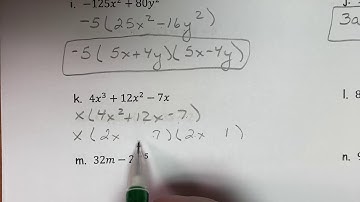 i. −125x² + 80y²
-5(25x²-16y²)
-5(5x+4y)(5x-4y)
3a
k. 4x³ + 12x² − 7x
x(4x²+12x-7)
l. 8
x(2x 7)(2x 1)
m. 32m − 2 5
n. 9